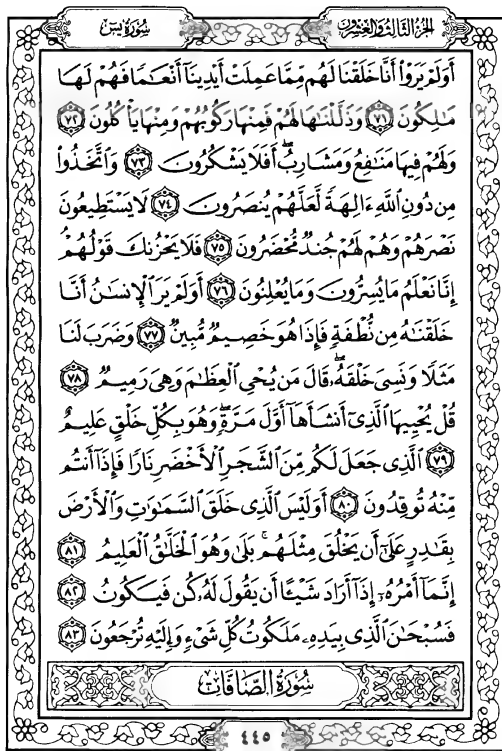 الجزء الثالث والعشرون
سورة يس
أَوَلَمْ يَرَوْا۟ أَنَّا خَلَقْنَا لَهُم مِّمَّا عَمِلَتْ أَيْدِينَآ أَنْعَـٰمًا فَهُمْ لَهَا
مَـٰلِكُونَ ٧١ وَذَلَّلْنَـٰهَا لَهُمْ فَمِنْهَا رَكُوبُهُمْ وَمِنْهَا يَأْكُلُونَ ٧٢
وَلَهُمْ فِيهَا مَنَـٰفِعُ وَمَشَارِبُ ۖ أَفَلَا يَشْكُرُونَ ٧٣ وَٱتَّخَذُوا۟
مِن دُونِ ٱللَّهِ ءَالِهَةً لَّعَلَّهُمْ يُنصَرُونَ ٧٤ لَا يَسْتَطِيعُونَ
نَصْرَهُمْ وَهُمْ لَهُمْ جُندٌ مُّحْضَرُونَ ٧٥ فَلَا يَحْزُنكَ قَوْلُهُمْ
إِنَّا نَعْلَمُ مَا يُسِرُّونَ وَمَا يُعْلِنُونَ ٧٦ أَوَلَمْ يَرَ ٱلْإِنسَـٰنُ أَنَّا
خَلَقْنَـٰهُ مِن نُّطْفَةٍ فَإِذَا هُوَ خَصِيمٌ مُّبِينٌ ٧٧ وَضَرَبَ لَنَا
مَثَلًا وَنَسِىَ خَلْقَهُۥ ۖ قَالَ مَن يُحْىِ ٱلْعِظَـٰمَ وَهِىَ رَمِيمٌ ٧٨
قُلْ يُحْيِيهَا ٱلَّذِىٓ أَنشَأَهَآ أَوَّلَ مَرَّةٍ ۖ وَهُوَ بِكُلِّ خَلْقٍ عَلِيمٌ
٧٩ ٱلَّذِى جَعَلَ لَكُم مِّنَ ٱلشَّجَرِ ٱلْأَخْضَرِ نَارًا فَإِذَآ أَنتُم
مِّنْهُ تُوقِدُونَ ٨٠ أَوَلَيْسَ ٱلَّذِى خَلَقَ ٱلسَّمَـٰوَٰتِ وَٱلْأَرْضَ
بِقَـٰدِرٍ عَلَىٰٓ أَن يَخْلُقَ مِثْلَهُم ۚ بَلَىٰ وَهُوَ ٱلْخَلَّـٰقُ ٱلْعَلِيمُ ٨١
إِنَّمَآ أَمْرُهُۥٓ إِذَآ أَرَادَ شَيْـًٔا أَن يَقُولَ لَهُۥ كُن فَيَكُونُ ٨٢
فَسُبْحَـٰنَ ٱلَّذِى بِيَدِهِۦ مَلَكُوتُ كُلِّ شَىْءٍ وَإِلَيْهِ تُرْجَعُونَ ٨٣
سورة الصافات
٤٤٥